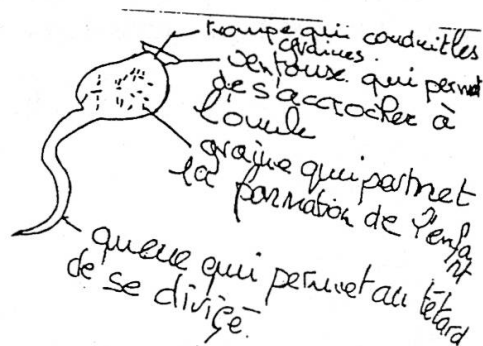 trompe qui conduit les
graines.
ventouse qui permet
de s'accrocher à
l'ovule
graine qui partmet
la formation de l'enfa
nt
queue qui permet au têtard
de se dirigé.